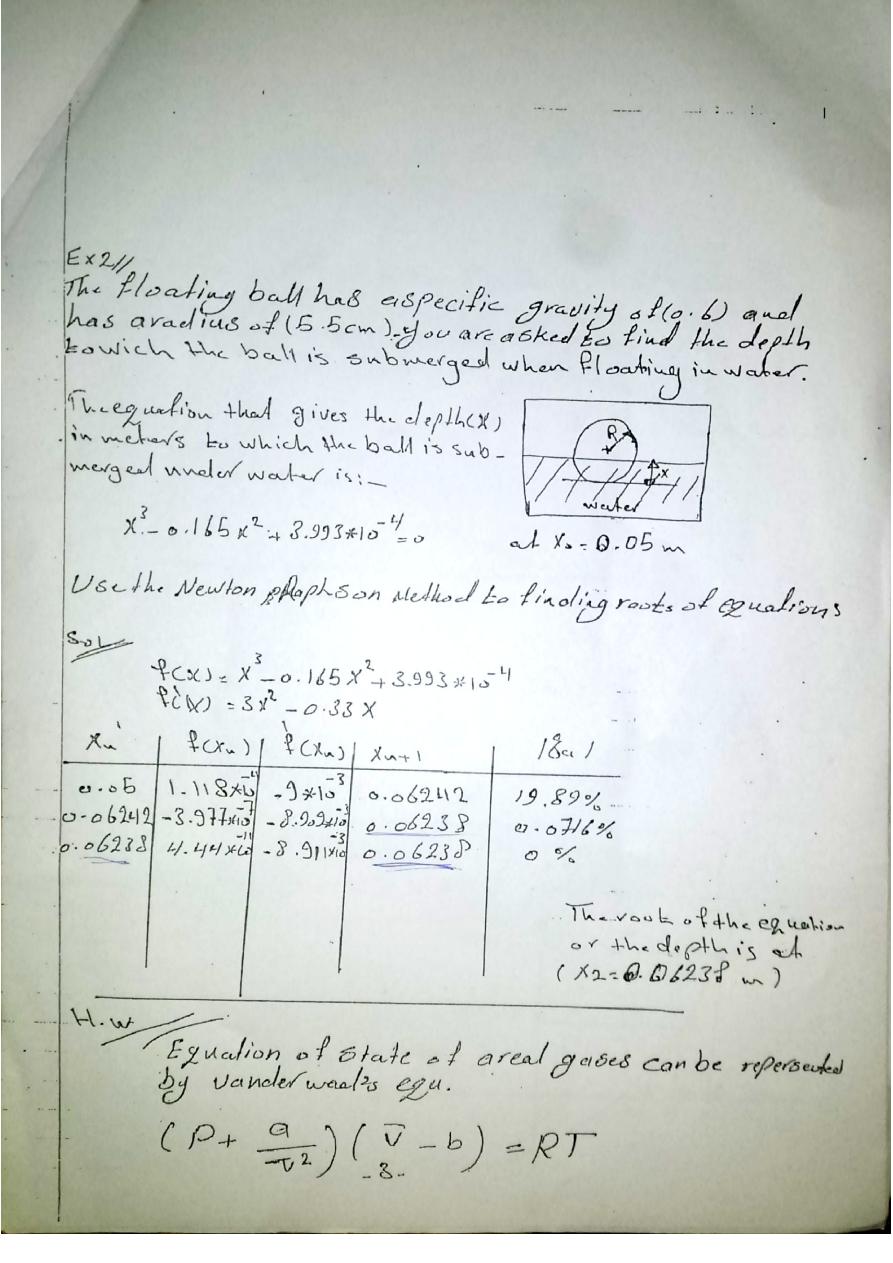 Ex2//
The floating ball has aspecific gravity of (0.6) and
has aradius of (5.5cm). you are asked to find the depth
towich the ball is submerged when floating in water.
The equation that gives the depth (x)
in meters to which the ball is sub-
merged under water is:-
R
x
water
x³ - 0.165x² + 3.993*10⁻⁴ = 0
at X₀ = 0.05 m
Use the Newton Raphson Method to finding roots of equations
Sol
f(x) = x³ - 0.165x² + 3.993*10⁻⁴
f'(x) = 3x² - 0.33x
xn | f(xn) | f'(xn) | xn+1 | |εa|
0.05 | 1.118*10⁻⁴ | -9*10⁻³ | 0.06242 | 19.89%
0.06242 | -3.977*10⁻⁷ | -8.909*10⁻³ | 0.06238 | 0.0716%
0.06238 | 4.44*10⁻¹¹ | -8.911*10⁻³ | 0.06238 | 0%
The root of the equation
or the depth is at
(X2=0.06238 m)
H.w
Equation of state of areal gases can be repersented
by vanderwaal's equ.
(P + a/v̄²)(v̄ - b) = RT
-3-